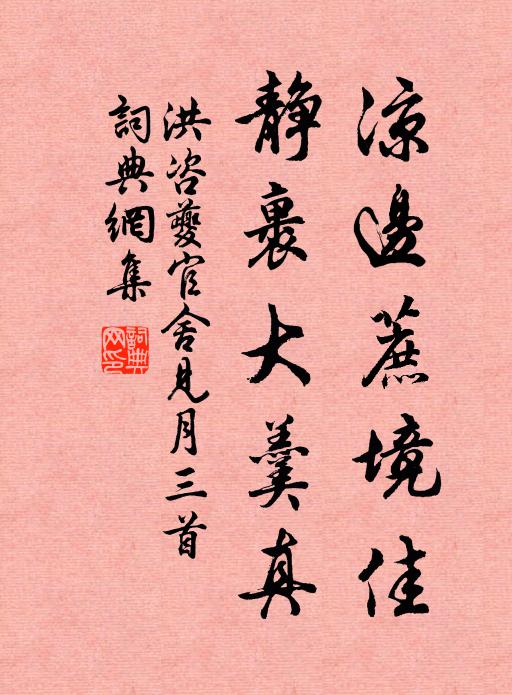 涼邊蔗境佳
靜裏大羹真
洪咨夔官舍見月三首
詞典網集
詞典網印